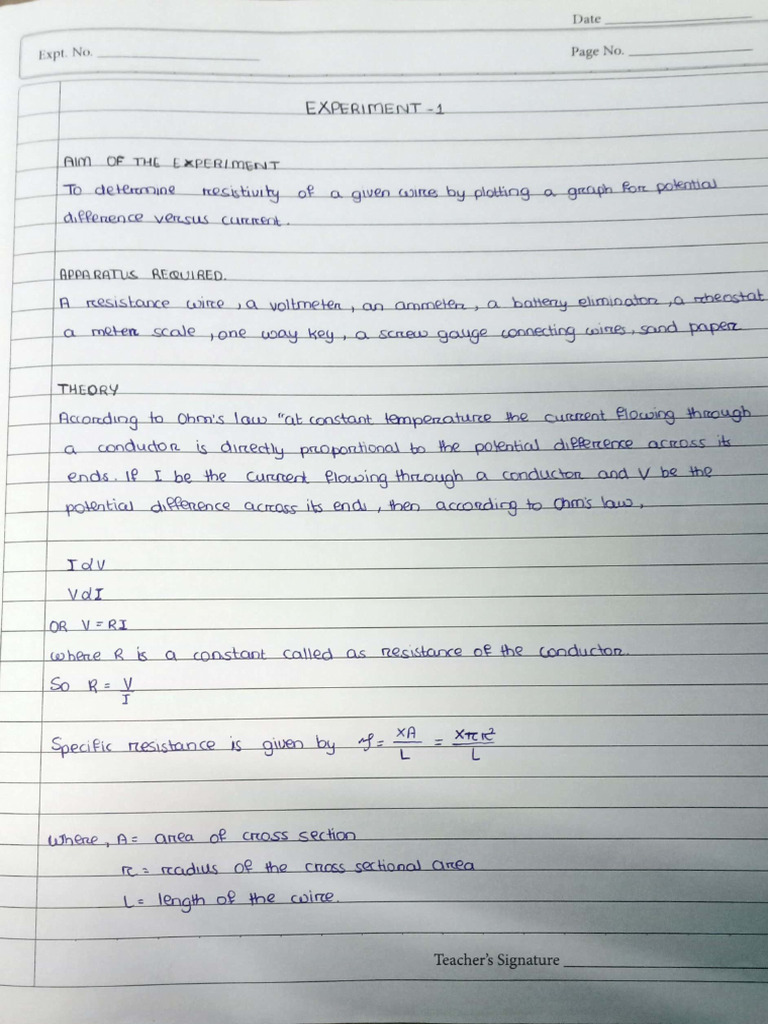 Date
Expt. No.
Page No.
EXPERIMENT-1
AIM OF THE EXPERIMENT
To determine resistivity of a given wire by plotting a graph for potential
difference versus current.
APPARATUS REQUIRED.
A resistance wire, a voltmeter, an ammeter, a battery eliminator, a rheostat
a meter scale, one way key, a screw gauge connecting wires, sand paper
THEORY
According to Ohm's law "at constant temperature the current flowing through
a conductor is directly proportional to the potential difference across its
ends. If I be the current flowing through a conductor and V be the
potential difference across its ends, then according to Ohm's law,
I α V
V α I
OR V = RI
where R is a constant called as resistance of the conductor.
So R = V/I
Specific resistance is given by ρ = XA/L = Xπr²/L
where, A = area of cross section
r = radius of the cross sectional area
L = length of the wire.
Teacher's Signature